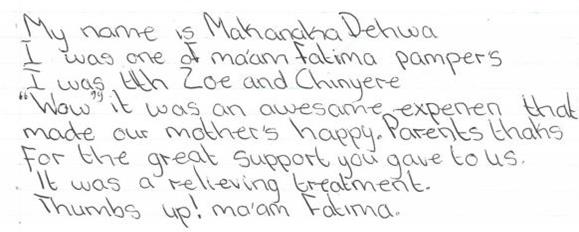 My name is Makanaka Dehwa
I was one of ma'am fatima pampers
I was with Zoe and Chinyere
"Wow" it was an awesame experien that
made our mother's happy. Parents thaks
For the great support you gave to us.
It was a relieving treatment.
Thumbs up! ma'am Fatima.